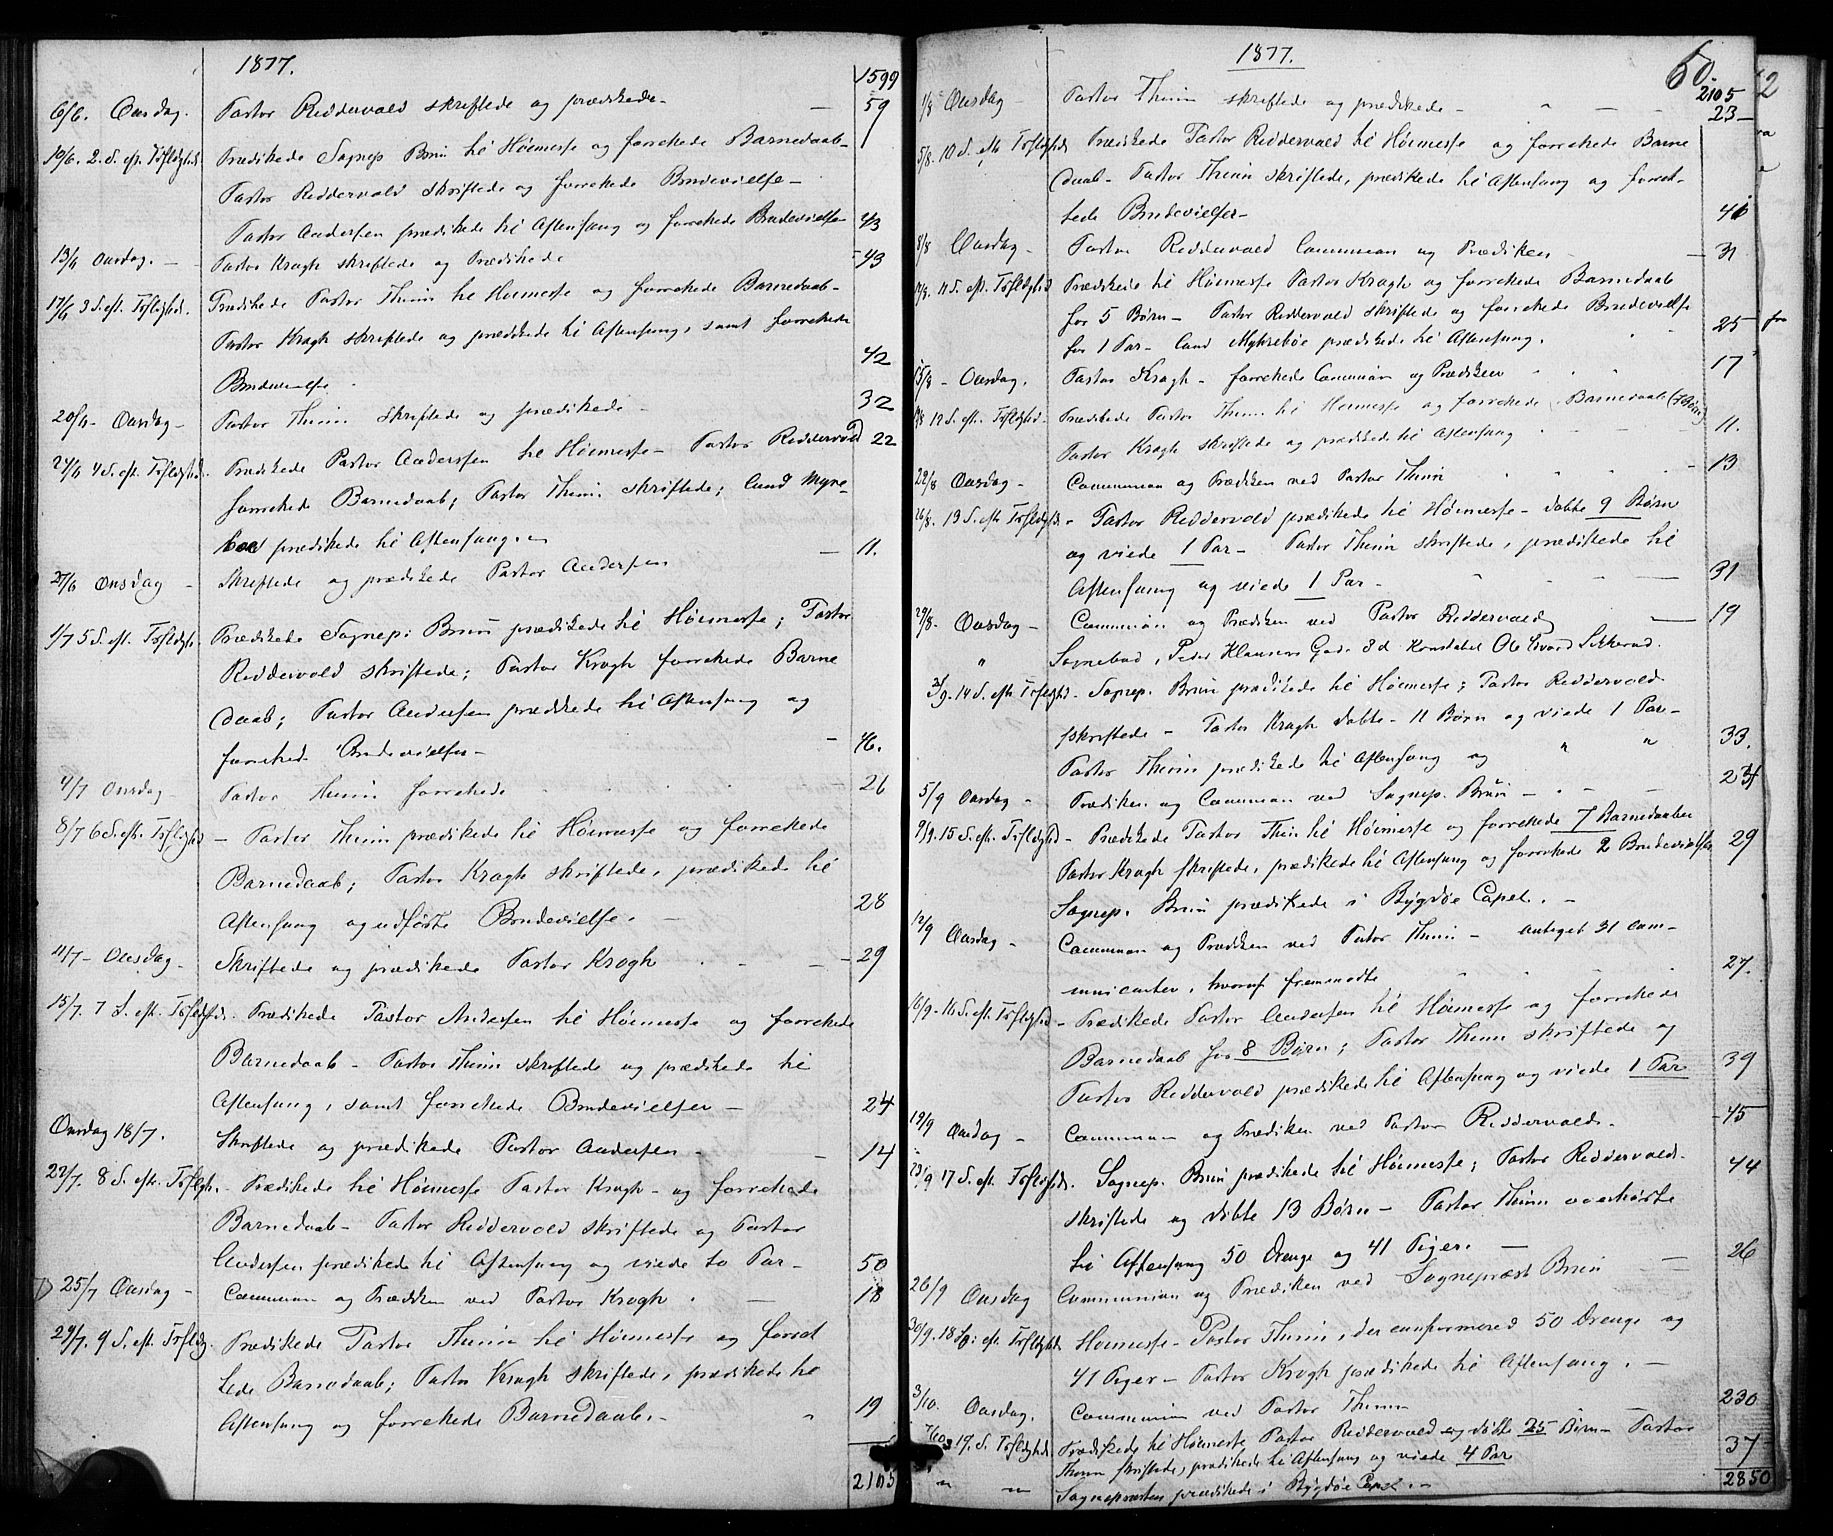 1877.
1599
6/6. Onsdag. Pastor Riddervold skriftede og prædikede — 59
10/6. 2. S. eft. Trefoldighed. Prædikede Sognep. Bruun til Høimesse og forrettede Barnedaab-
Pastor Riddervold skriftede og forrettede Brudevielse —
Pastor Andersen prædikede til Aftensang og forrettede Brudevielse 43
13/6 Onsdag. — Pastor Kragh skriftede og Prædikede — 43
17/6 3 S. eft. Trefoldighed. Prædikede Pastor Thinn til Høimesse og forrettede Barnedaab-
Pastor Kragh skriftede og prædikede til Aftensang, samt forrettede
Brudevielse. 42
20/6 — Onsdag — Pastor Thinn skriftede og prædikede — 32
24/6 4 S. eft. Trefoldighed. Prædikede Pastor Andersen til Høimesse — Pastor Riddervold 22
forrettede Barnedaab; Pastor Thinn skriftede; Cand Myre-
boe prædikede til Aftensang. —
27/6 Onsdag — Skriftede og prædikede Pastor Andersen — 11.
1/7 5 S. eft. Trefoldighed. Prædikede Sognep: Bruun prædikede til Høimesse; Pastor
Riddervold skriftede; Pastor Kragh forrettede Barne
daab; Pastor Andersen prædikede til Aftensang og
forrettede Brudevielser — 46.
4/7 Onsdag — Pastor Thinn forrettede 26
8/7 6 S. eft. Trefoldighed — Pastor Thinn prædikede til Høimesse og forrettede
Barnedaab; Pastor Kragh skriftede, prædikede til
Aftensang og udførte Brudevielse. — 28
11/7 — Onsdag — Skriftede og prædikede Pastor Kragh — 29
15/7. 7 S. eft. Trefoldighed. Prædikede Pastor Andersen til Høimesse og forrettede
Barnedaab — Pastor Thinn skriftede og prædikede til
Aftensang, samt forrettede Brudevielser — 24
Onsdag 18/7. Skriftede og prædikede Pastor Andersen — 14
22/7. 8 S. eft. Trefoldigh. — Prædikede til Høimesse Pastor Kragh — og forrettede
Barnedaab — Pastor Riddervold skriftede og Pastor
Andersen prædikede til Aftensang og viede to Par — 50
25/7 Onsdag — Communion og Prædiken ved Pastor Kragh. — 18
29/7. 9 S. eft. Trefoldig. Prædikede Pastor Thinn til Høimesse og forret
tede Barnedaab; Pastor Kragh skriftede, prædikede til
Aftensang og forrettede Barnedaab. — 19
2105
1877.
60.
2105
1/8 Onsdag — Pastor Thinn skriftede og prædikede — 23 —
5/8. 10 S. eft Trefoldighed Prædikede Pastor Riddervold til Høimesse og forrettede Barne
daab — Pastor Thinn skriftede, prædikede til Aftensang og forret-
tede Brudevielser — 41
8/8 Onsdag — Pastor Riddervold Communion og Prædiken — 31
12/8. 11 S. eft. Trefoldighed Prædikede til Høimesse Pastor Kragh og forrettede Barnedaab
for 5 Børn — Pastor Riddervold skriftede og forrettede Brudevielse
for 1 Par — Cand Myhreboe prædikede til Aftensang. 25
15/8 — Onsdag. Pastor Kragh — forrettede Communion og Prædiken 17
19/8 12 S. eft. Trefoldighed. Prædikede Pastor Thinn til Høimesse og forrettede Barnedaab (7 Børn)
Pastor Kragh skriftede og prædikede til Aftensang 11.
22/8 Onsdag — Communion og Prædiken ved Pastor Thinn — 13
26/8. 13 S. eft. Trefoldighed — Pastor Riddervold prædikede til Høimesse — døbte 9 Børn
og viede 1 Par — Pastor Thinn skriftede, prædikede til
Aftensang og viede 1 Par — 31
29/8. Onsdag — Communion og Prædiken ved Pastor Riddervold — 19
" Sognebud, Peder Klausens Gade 3 d Konstabel Ole Evard
2/9. 14 S. eft. Trefoldighed — Sognep. Bruun prædikede til Høimesse; Pastor Riddervold
skriftede — Pastor Kragh døbte — 11 Børn og viede 1 Par —
Pastor Thinn prædikede til Aftensang og " " 33.
5/9 Onsdag — Prædiken og Communion ved Sognep. Bruun — 23
9/9. 15 S. eft. Trefoldighed — Prædikede Pastor Thinn til Høimesse og forrettede 7 Barnedaaber
Pastor Kragh skriftede, prædikede til Aftensang og forrettede 2 Brudevielser 29
Sognep. Bruun prædikede i Bygdøe Capel. —
12/9 Onsdag — Communion og Prædiken ved Pastor Thinn — anteget 31 com-
municanter, hvoraf fremmødte 27.
16/9 — 16 S. eft. Trefoldighed — Prædikede Pastor Andersen til Høimesse og forrettede
Barnedaab for 8 Børn; Pastor Thinn skriftede og
Pastor Riddervold prædikede til Aftensang og viede 1 Par 39
19/9 Onsdag — Communion og Prædiken ved Pastor Riddervold. 45
23/9 17 S. eft. Trefoldighed. Sognep. Bruun prædikede til Høimesse; Pastor Riddervold 44
skriftede og døbte 13 Børn — Pastor Thinn overhørte
til Aftensang 50 Drenge og 41 Piger. —
26/9 Onsdag Communion og Prædiken ved Sognepræst Bruun — 26
30/9. 18 S. eft. Trefoldighed Høimesse — Pastor Thinn, der confirmered 50 Drenge og
41 Piger — Pastor Kragh prædikede til Aftensang. —
3/10. Onsdag. Communion ved Pastor Thinn 230
7/10 19. S. Trefoldighed. Prædikede til Høimesse Pastor Riddervold og døbte 25 Børn — Pastor
Thinn skriftede, prædikede til Aftensang og viede 4 Par 37
" " Sognepræsten prædikede i Bygdøe Capel. — 2850